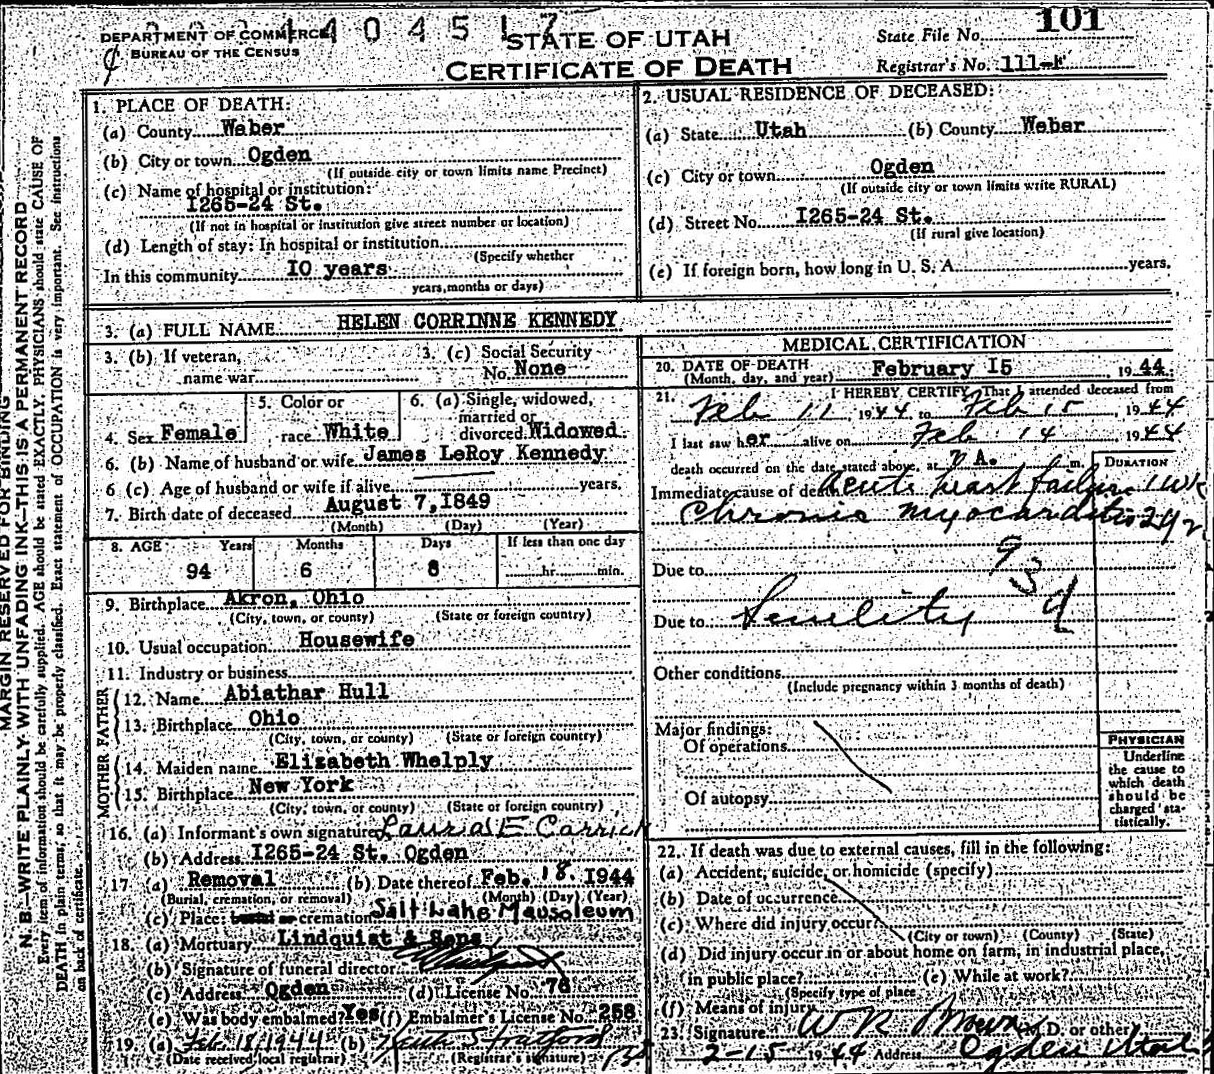 DEPARTMENT OF COMMERCE
BUREAU OF THE CENSUS
4 4 0 4 5 1 7
STATE OF UTAH
CERTIFICATE OF DEATH
State File No. 101
Registrar's No. 111-F
MARGIN RESERVED FOR BINDING
N. B.—WRITE PLAINLY WITH UNFADING INK—THIS IS A PERMANENT RECORD
Every item of information should be carefully supplied. AGE should be stated EXACTLY. PHYSICIANS should state CAUSE OF
DEATH in plain terms, so that it may be properly classified. Exact statement of OCCUPATION is very important. See instructions
on back of certificate.
1. PLACE OF DEATH:
(a) County Weber
(b) City or town Ogden
(If outside city or town limits name Precinct)
(c) Name of hospital or institution:
I265-24 St.
(If not in hospital or institution give street number or location)
(d) Length of stay: In hospital or institution
(Specify whether
In this community IO years
years, months or days)
2. USUAL RESIDENCE OF DECEASED:
(a) State Utah (b) County Weber
(c) City or town Ogden
(If outside city or town limits write RURAL)
(d) Street No. I265-24 St.
(If rural give location)
(e) If foreign born, how long in U. S. A. years.
3. (a) FULL NAME HELEN CORRINNE KENNEDY
3. (b) If veteran, name war
3. (c) Social Security No. None
4. Sex Female
5. Color or race White
6. (a) Single, widowed, married or divorced Widowed
6. (b) Name of husband or wife James LeRoy Kennedy
6 (c) Age of husband or wife if alive years.
7. Birth date of deceased August 7, I849
(Month) (Day) (Year)
8. AGE Years Months Days If less than one day
94 6 8 hr. min.
9. Birthplace Akron, Ohio
(City, town, or county) (State or foreign country)
10. Usual occupation Housewife
11. Industry or business
FATHER
12. Name Abiathar Hull
13. Birthplace Ohio
(City, town, or county) (State or foreign country)
MOTHER
14. Maiden name Elizabeth Whelply
15. Birthplace New York
(City, town, or county) (State or foreign country)
16. (a) Informant's own signature Laura E Carrick
(b) Address I265-24 St. Ogden
17 (a) Removal (b) Date thereof Feb. 18. 1944
(Burial, cremation, or removal) (Month) (Day) (Year)
(c) Place: burial or cremation Salt Lake Mausoleum
18. (a) Mortuary Lindquist & Sons,
(b) Signature of funeral director
(c) Address Ogden (d) License No. 76
(e) Was body embalmed? Yes (f) Embalmer's License No. 258
19. (a) Feb. 18, 1944 (b)
(Date received local registrar) (Registrar's signature)
MEDICAL CERTIFICATION
20. DATE OF DEATH February I5 1944
(Month, day, and year)
21. I HEREBY CERTIFY, That I attended deceased from
Feb 11, 1944 to Feb 15, 1944
I last saw her alive on Feb 14 1944
death occurred on the date stated above, at A. m.
DURATION
Immediate cause of death Acute heart failure 1 wk
Chronic myocarditis 2 yr
Due to
93d
Due to Senility
Other conditions
(Include pregnancy within 3 months of death)
Major findings:
Of operations
Of autopsy
PHYSICIAN
Underline
the cause to
which death
should be
charged sta-
tistically.
22. If death was due to external causes, fill in the following:
(a) Accident, suicide, or homicide (specify)
(b) Date of occurrence
(c) Where did injury occur?
(City or town) (County) (State)
(d) Did injury occur in or about home on farm, in industrial place,
in public place? (e) While at work?
(Specify type of place
(f) Means of injury
23. Signature W R Brown M.D. or other
2-15 1944 Address Ogden Utah